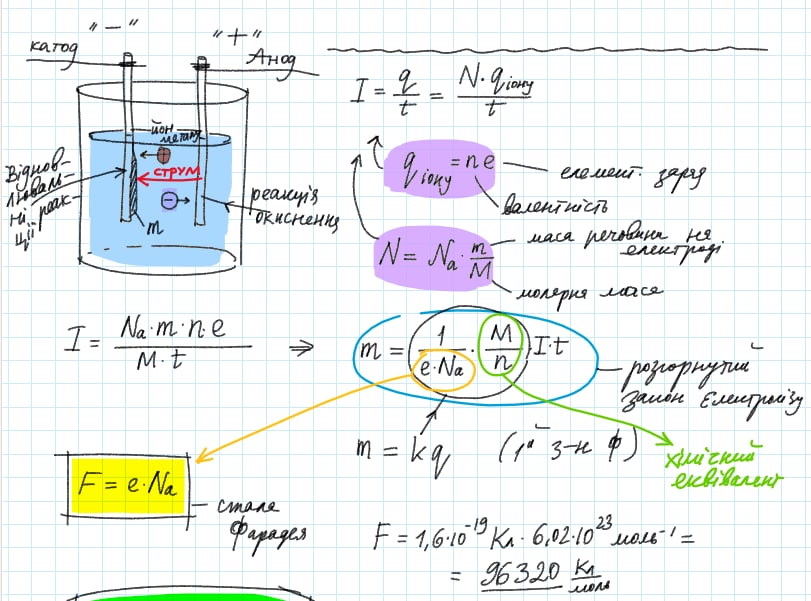 "—" "+"
катод Анод
йон
металу
струм
Віднов-
люваль-
ні реак-
ції
реакція
окиснення
m
I = q/t = N·qіону/t
qіону = ne
елемент. заряд
валентність
N = Na · m/M
маса речовини на
електроді
молярна маса
I = Na·m·n·e/M·t ⇒ m = (1/e·Na · M/n) I·t
розгорнутий
закон Електролізу
m = kq (1й з-н Ф)
хімічний
еквівалент
F = e·Na
стала
Фарадея
F = 1,6·10⁻¹⁹ Кл · 6,02·10²³ моль⁻¹ =
= 96320 Кл/моль